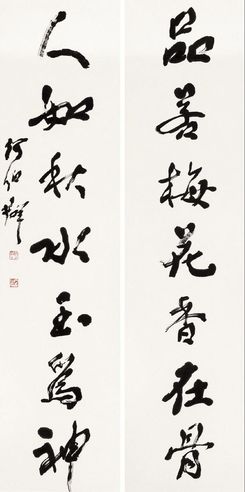 品若梅花香在骨
人如秋水玉為神
何伯群